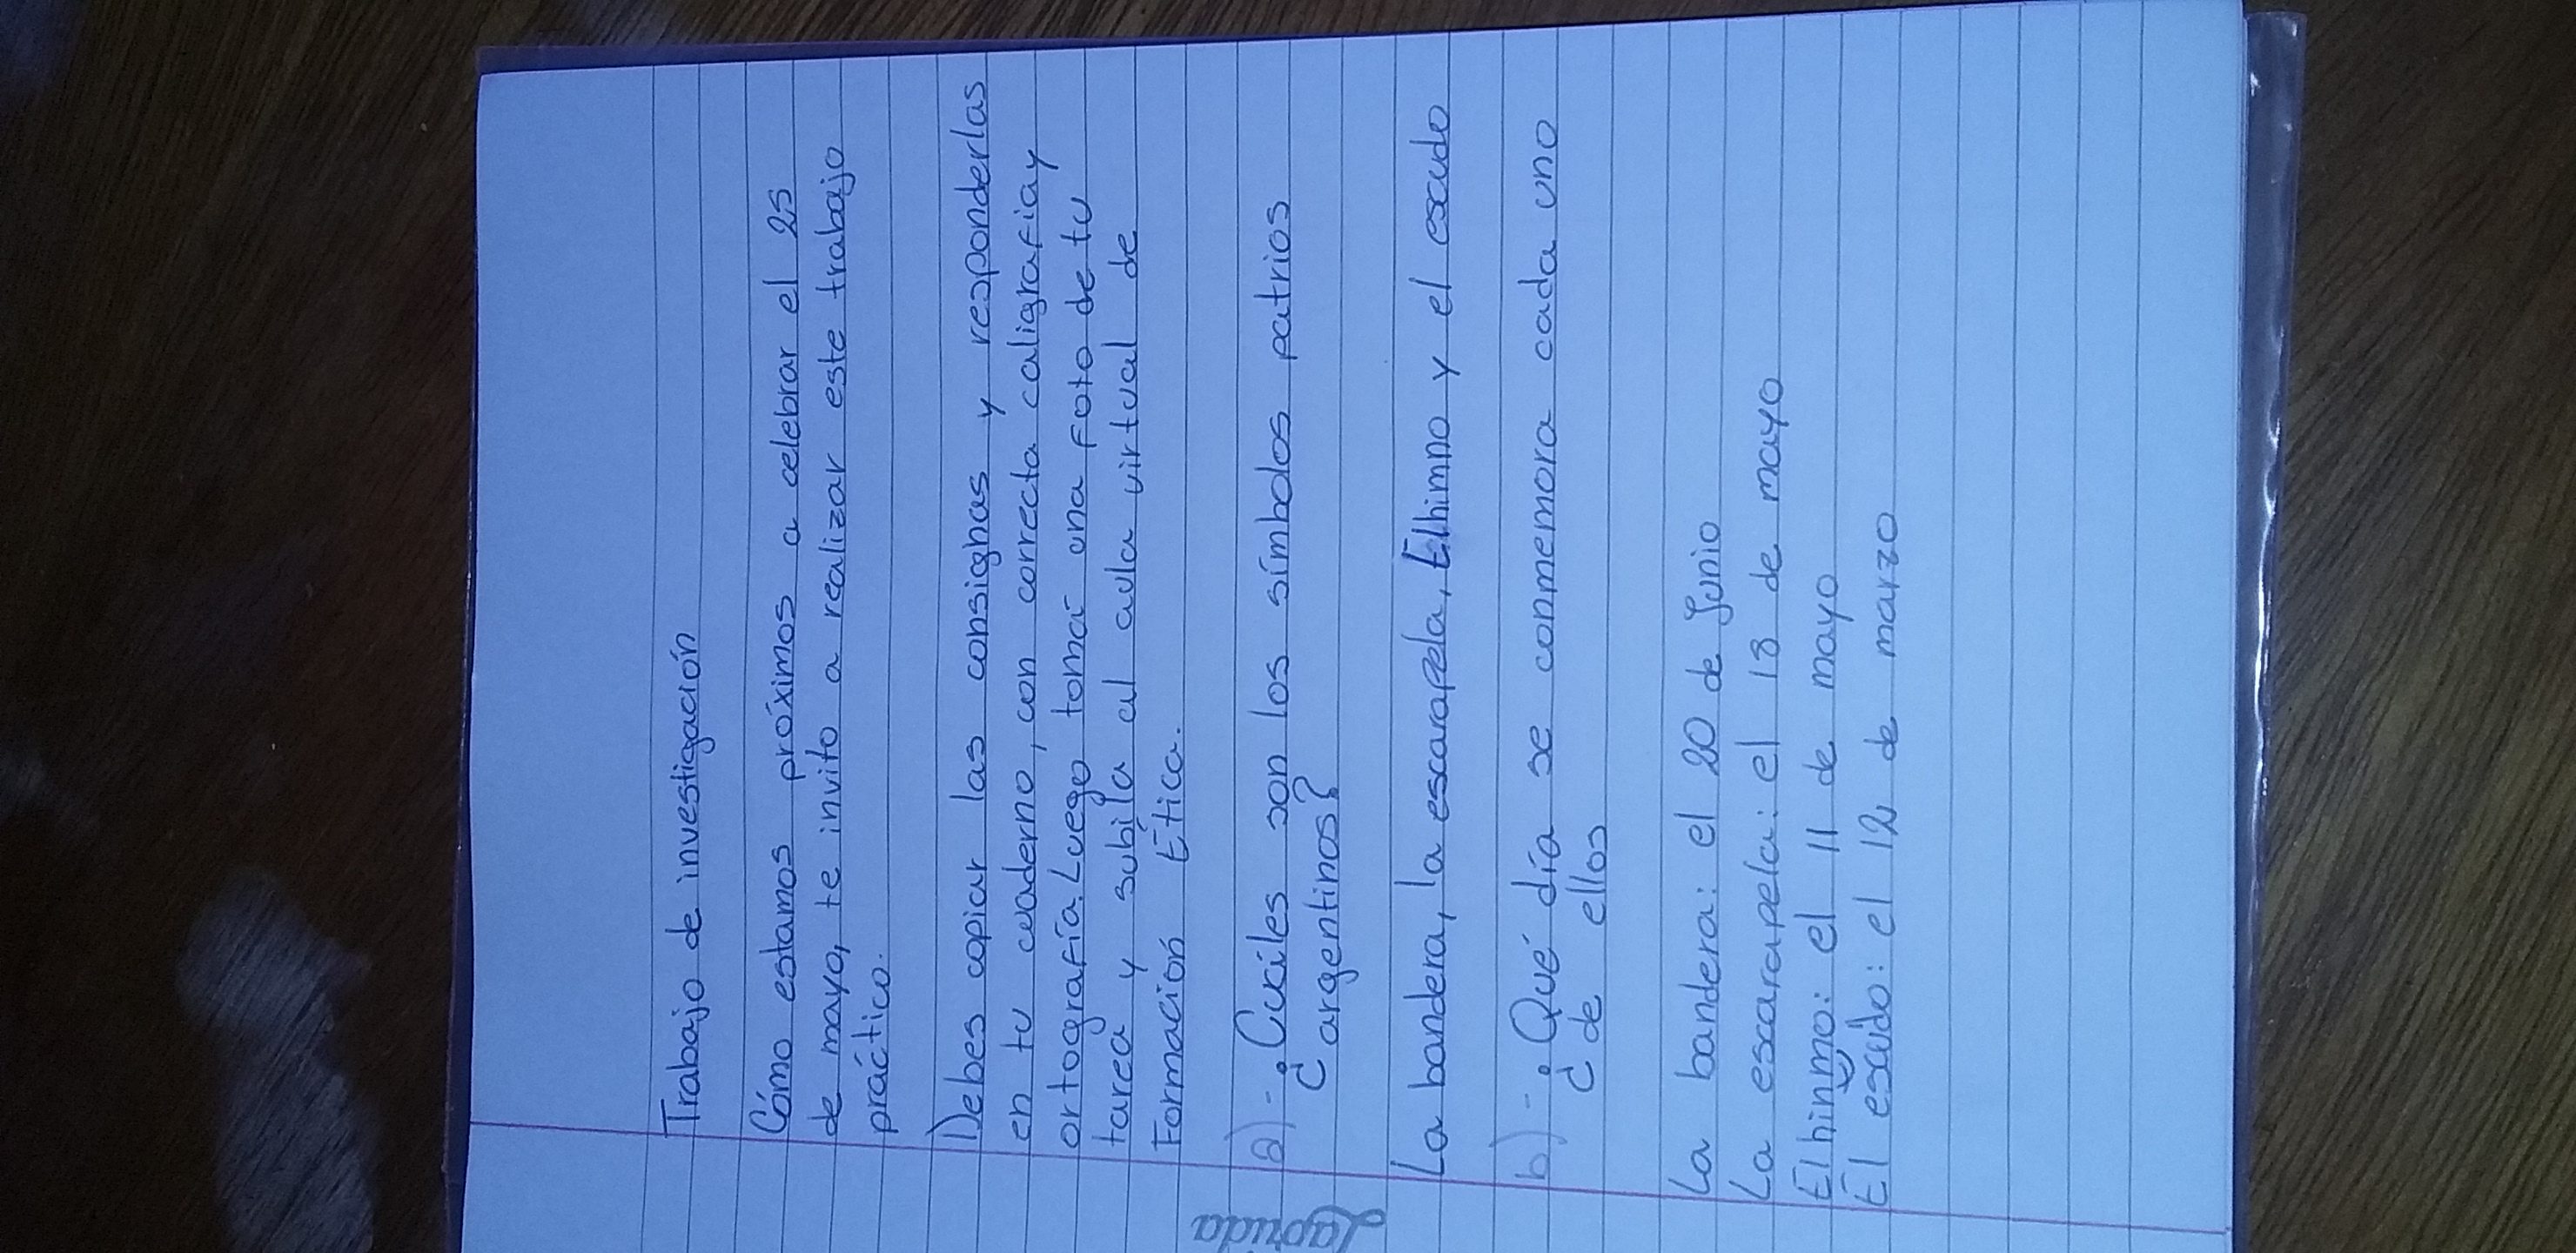 Trabajo de investigación
Cómo estamos próximos a celebrar el 25
de mayo, te invito a realizar este trabajo
práctico.
Debes copiar las consignas y responderlas
en tu cuaderno, con correcta caligrafía y
ortografía. Luego tomá una foto de tu
tarea y subila al aula virtual de
Formación Ética.
a)- ¿Cuáles son los símbolos patrios
argentinos?
La bandera, la escarapela, El himno y el escudo
b)- ¿Qué día se conmemora cada uno
de ellos
La bandera: el 20 de Junio
La escarapela: el 18 de mayo
El himno: el 11 de mayo
El escudo: el 12 de marzo
Laprida